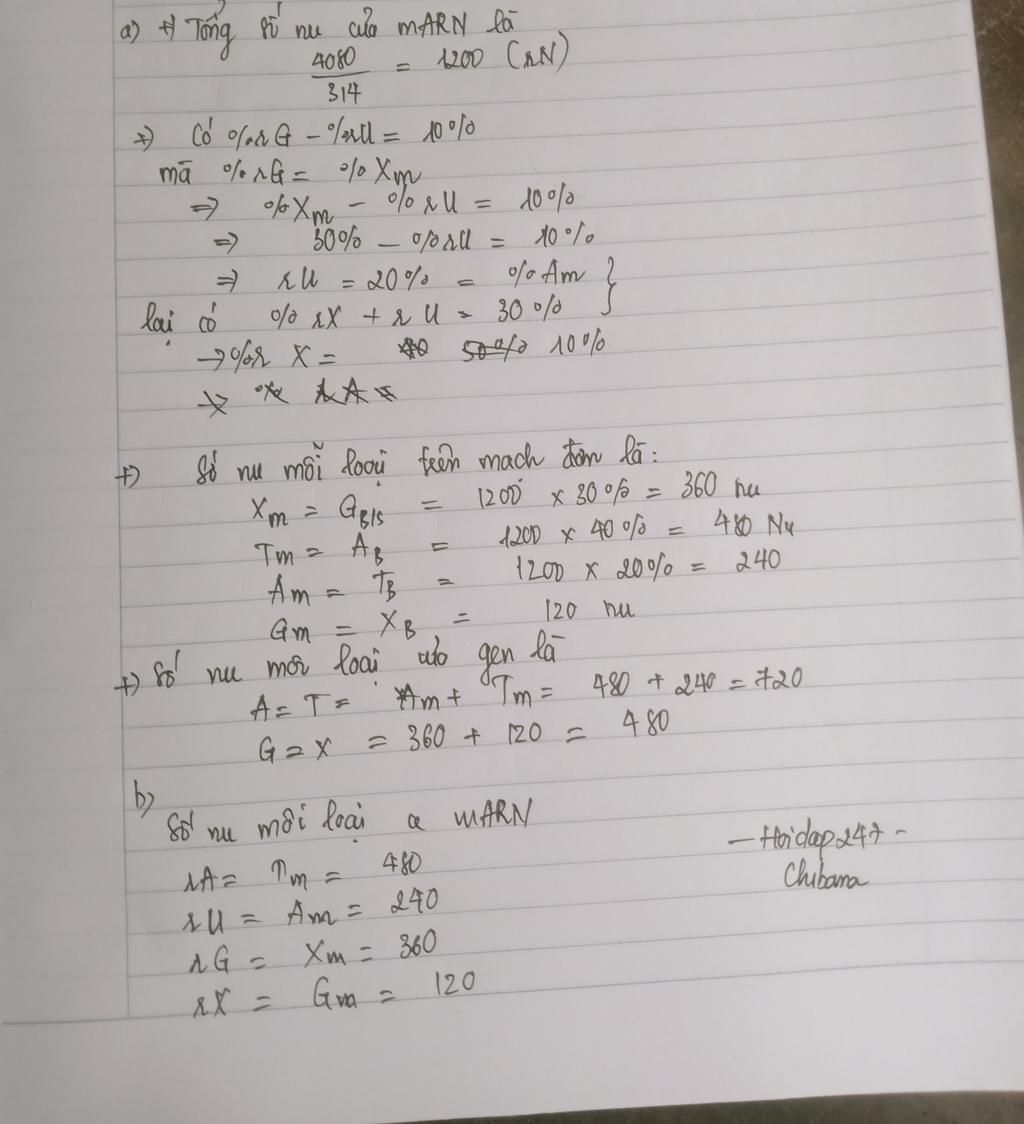 a) +) Tổng số nu của mARN là
4080
314
= 1200 (rN)
+) Có %rG - %rU = 10%
mà %rG = %Xm
=> %Xm - %rU = 10%
=> 30% - %rU = 10%
=> rU = 20% = %Am }
lại có %rX + rU = 30%
→ %r X = 10%
+) Số nu mỗi loại trên mạch đơn là:
Xm = GB/S = 1200 x 30% = 360 nu
Tm = AB = 1200 x 40% = 480 Nu
Am = TB = 1200 x 20% = 240
Gm = XB = 120 nu
+) Số nu mỗi loại của gen là
A = T = Am + Tm = 480 + 240 = 720
G = X = 360 + 120 = 480
b)
Số nu mỗi loại mARN
rA = Tm = 480
rU = Am = 240
rG = Xm = 360
rX = Gm = 120
- Hoidap247 -
Chibana